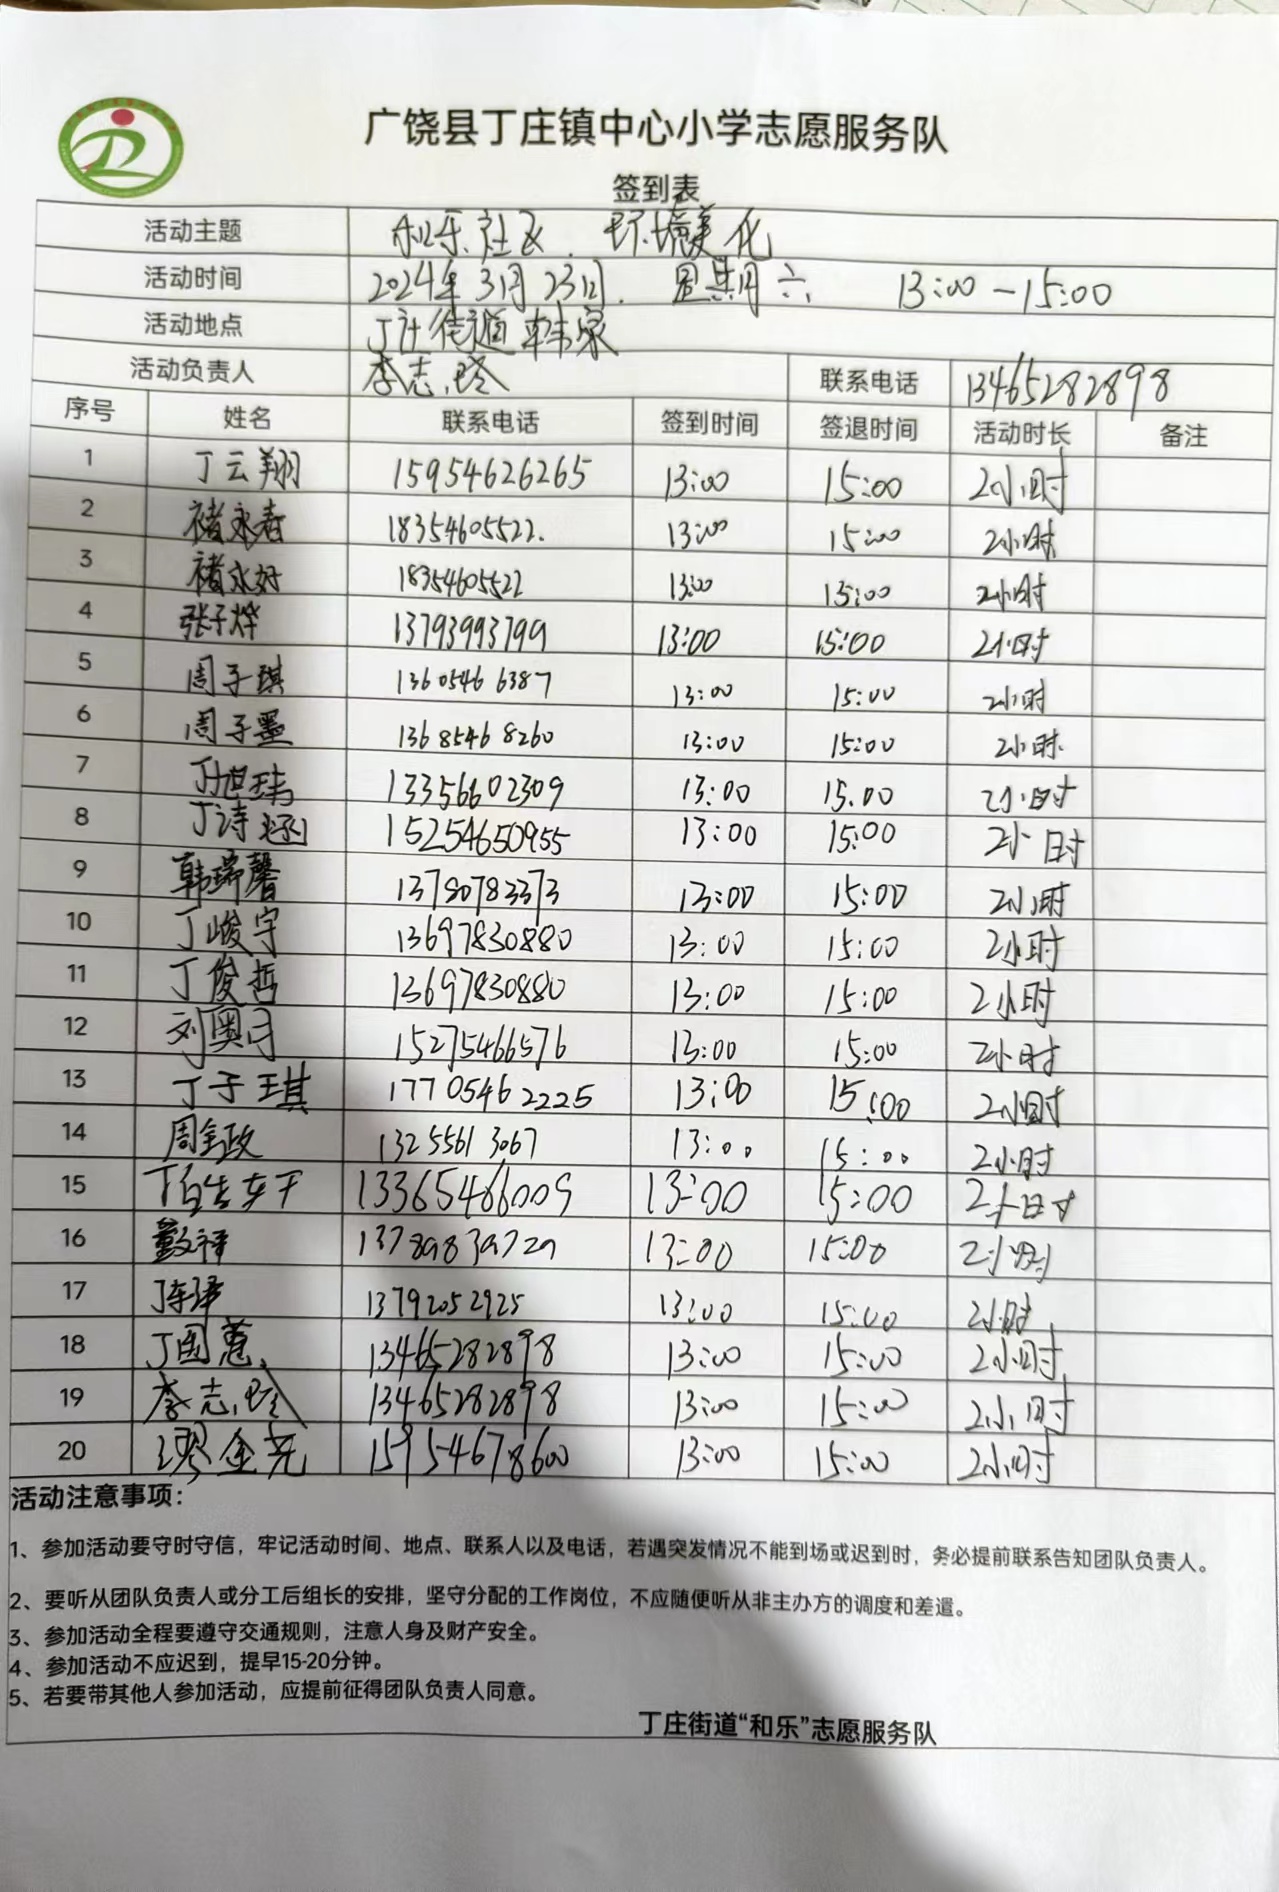 广饶县丁庄镇中心小学志愿服务队
签到表
活动主题 和乐社区. 环境美化
活动时间 2024年3月23日. 星期六 13:00-15:00
活动地点 丁庄街道韩家
活动负责人 李志玲 联系电话 13465282898
序号 姓名 联系电话 签到时间 签退时间 活动时长 备注
1 丁云翔 15954626265 13:00 15:00 2小时
2 褚永春 18354605522. 13:00 15:00 2小时
3 褚永好 18354605522 13:00 15:00 2小时
4 张子烨 13793993799 13:00 15:00 2小时
5 周子琪 13605466387 13:00 15:00 2小时
6 周子墨 13685468260 13:00 15:00 2小时.
7 丁旭玮 13356602309 13:00 15.00 2小时
8 丁诗 15254650955 13:00 15:00 2小时
9 韩瑞馨 13780783373 13:00 15:00 2小时
10 丁峻宇 13697830880 13:00 15:00 2小时
11 丁俊哲 13697830880 13:00 15:00 2小时
12 刘奥 15275466576 13:00 15:00 2小时
13 丁于琪 17705462225 13:00 15:00 2小时
14 周金政 13255613067 13:00 15:00 2小时
15 13365466009 13:00 15:00 2小时
16 13789839729 13:00 15:00 2小时
17 13792052925 13:00 15:00 2小时
18 丁国蕙 13465282898 13:00 15:00 2小时
19 李志玲 13465282898 13:00 15:00 2小时
20 金亮 15954678600 13:00 15:00 2小时
活动注意事项：
1、参加活动要守时守信，牢记活动时间、地点、联系人以及电话，若遇突发情况不能到场或迟到时，务必提前联系告知团队负责人。
2、要听从团队负责人或分工后组长的安排，坚守分配的工作岗位，不应随便听从非主办方的调度和差遣。
3、参加活动全程要遵守交通规则，注意人身及财产安全。
4、参加活动不应迟到，提早15-20分钟。
5、若要带其他人参加活动，应提前征得团队负责人同意。
丁庄街道“和乐”志愿服务队